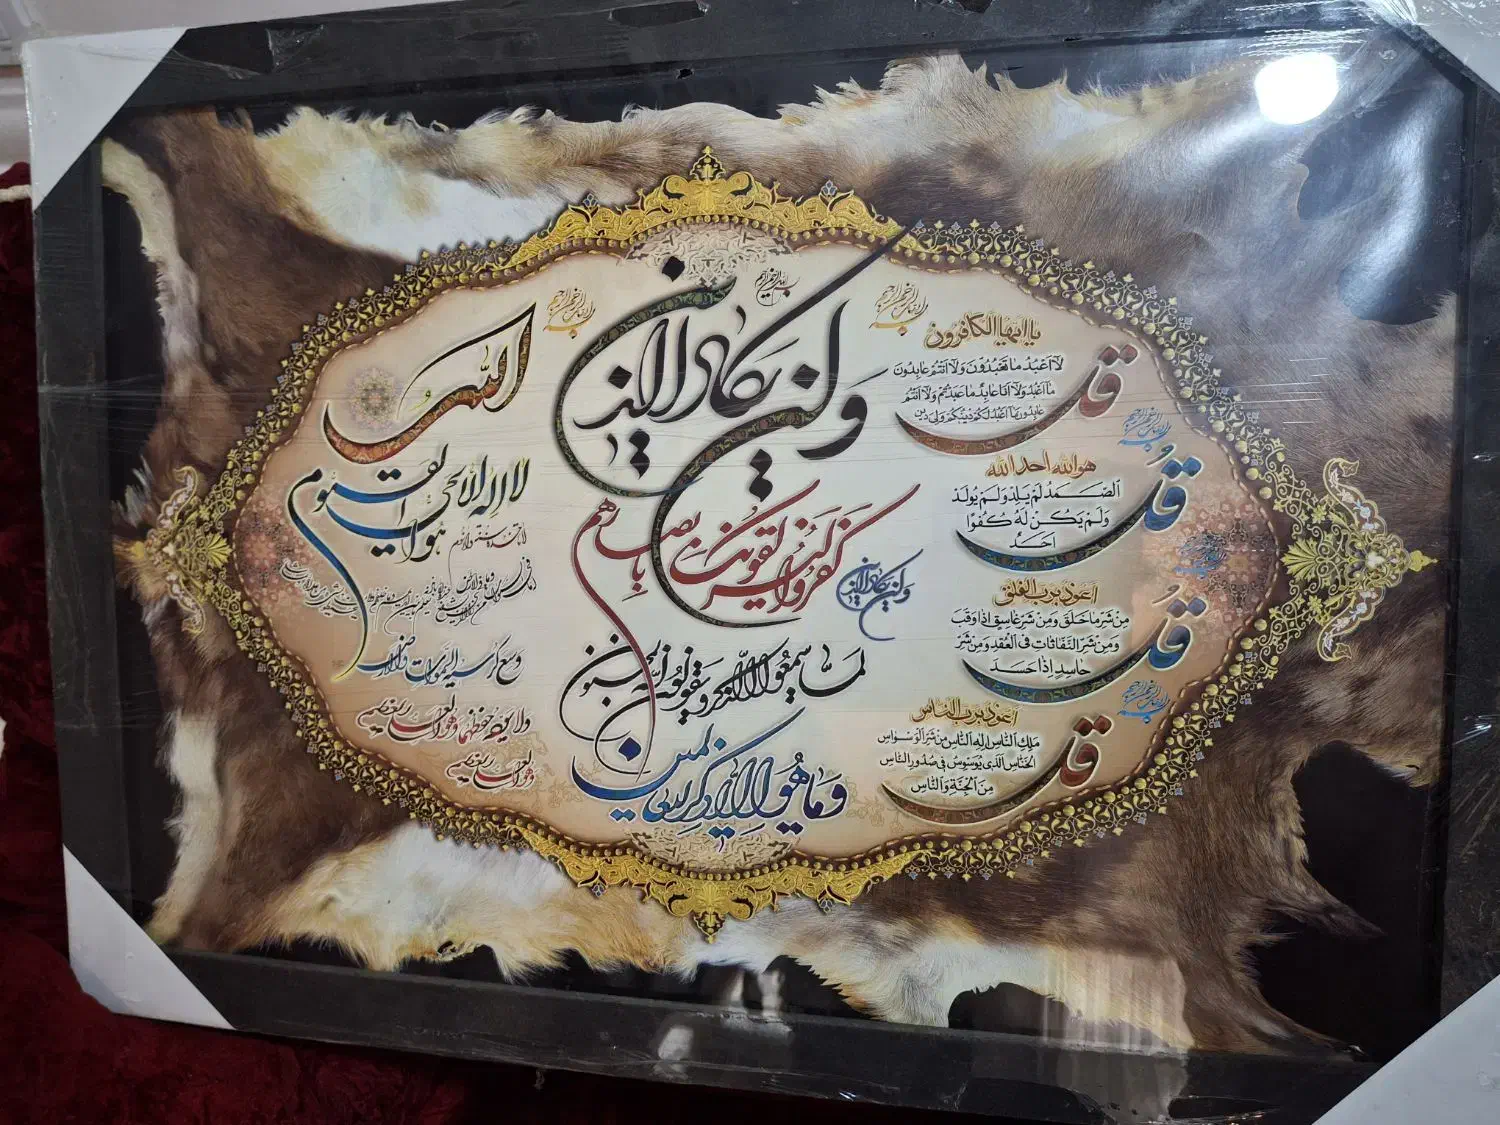 بسم الله الرحمن الرحیم
یا ایها الکافرون
قل
لا اَعْبُدُ ما تَعْبُدُونَ وَلا اَنْتُمْ عابِدُونَ
ما اَعْبُدُ وَلا اَنَا عابِدٌ ما عَبَدْتُمْ وَلا اَنْتُمْ
عابِدُونَ ما اَعْبُدُ لَكُمْ دینُكُمْ وَلِیَ دینِ
بسم الله الرحمن الرحیم
قُل
هو الله احد الله
الصَّمَدُ لَمْ یَلِدْ وَلَمْ یُولَدْ
وَلَمْ یَكُنْ لَهُ كُفُوًا
اَحَدٌ
بسم الله الرحمن الرحیم
قُل
اعوذ برب الفلق
مِنْ شَرِّ ما خَلَقَ وَمِنْ شَرِّ غاسِقٍ اِذا وَقَبَ
وَمِنْ شَرِّ النَّفّاثاتِ فِی الْعُقَدِ وَمِنْ شَرِّ
حاسِدٍ اِذا حَسَدَ
بسم الله الرحمن الرحیم
قل
اعوذ برب الناس
مَلِكِ النّاسِ اِلهِ النّاسِ مِنْ شَرِّ الْوَسْواسِ
الْخَنّاسِ الَّذی یُوَسْوِسُ فی صُدُورِ النّاسِ
مِنَ الْجِنَّةِ وَالنّاسِ
بسم الله الرحمن الرحیم
وَاِن یکاد الذین
کَفَروا لَیُزلقونک بابصارهم
وان یکاد الذین
لَمّا سَمِعُوا الذکر و یقولون انه لمجنون
وَما هُوَ الا ذکر للعالمین
بسم الله الرحمن الرحیم
الله
لا اله الا هو الحی القیوم
لا تاخذه سنة ولا نوم
وسع کرسیه السموات والارض
ولا یوده حفظهما وهو العلی العظیم
وهو العلی العظیم